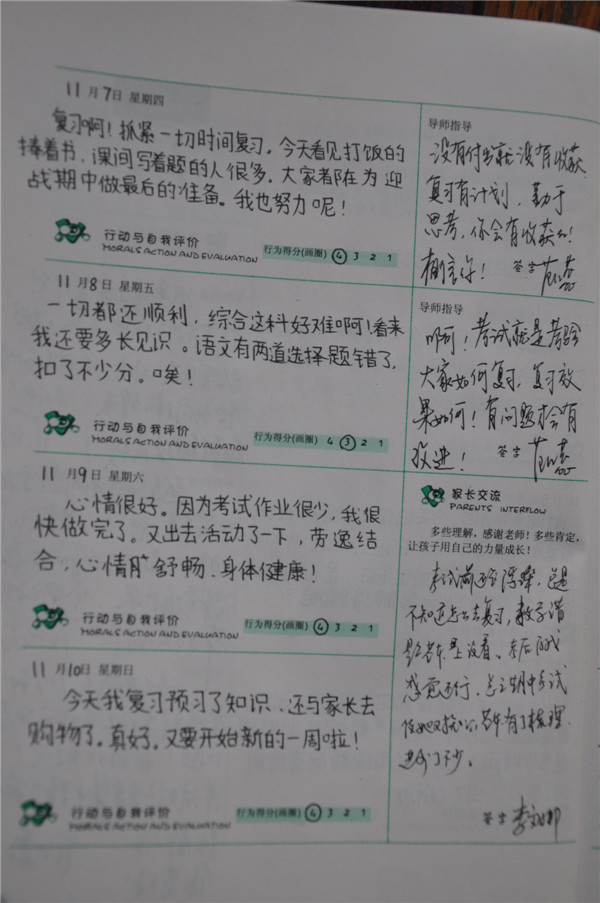 11月7日 星期四
复习啊！抓紧一切时间复习。今天看见打饭的
捧着书，课间写着题的人很多。大家都在为迎
战期中做最后的准备。我也努力呢！
行动与自我评价
MORALS ACTION AND EVALUATION
行为得分(画圈) 4 3 2 1
导师指导
没有付出就没有收获
复习有计划，勤于
思考，你会有收获的！
相信你！ 签字
11月8日 星期五
一切都还顺利，综合这科好难啊！看来
我还要多长见识。语文有两道选择题错了，
扣了不少分。唉！
行动与自我评价
MORALS ACTION AND EVALUATION
行为得分(画圈) 4 3 2 1
导师指导
啊！考试就是考验
大家如何复习，复习效
果如何！有问题才会有
改进！ 签字
11月9日 星期六
心情很好。因为考试作业很少，我很
快做完了。又出去活动了一下，劳逸结
合，心情舒畅、身体健康！
行动与自我评价
MORALS ACTION AND EVALUATION
行为得分(画圈) 4 3 2 1
家长交流
PARENTS INTERFLOW
多些理解，感谢老师！多些肯定，
让孩子用自己的力量成长！
考试前还会浮躁，总是
不知道怎么去复习，数学错
没看。考后自我
感觉还行，
有了梳理
进步了不少。
签字
11月10日 星期日
今天我复习预习了知识、还与家长去
购物了。真好。又要开始新的一周啦！
行动与自我评价
MORALS ACTION AND EVALUATION
行为得分(画圈) 4 3 2 1